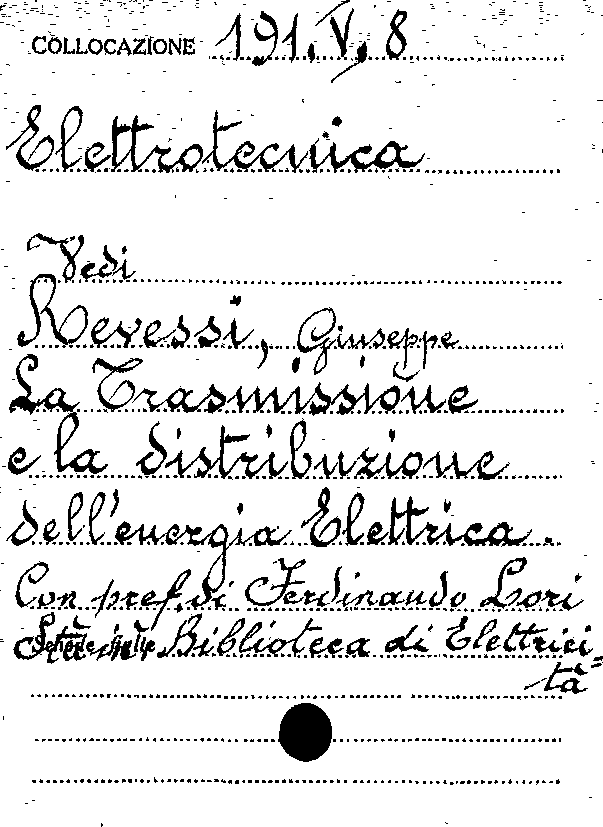 COLLOCAZIONE 191. V, 8
Elettrotecnica
Vedi
Revessi, Giuseppe
La Trasmissione
e la distribuzione
dell'energia Elettrica.
Con pref. di Ferdinando Lori
Sta in: Biblioteca di Elettrici=
tà